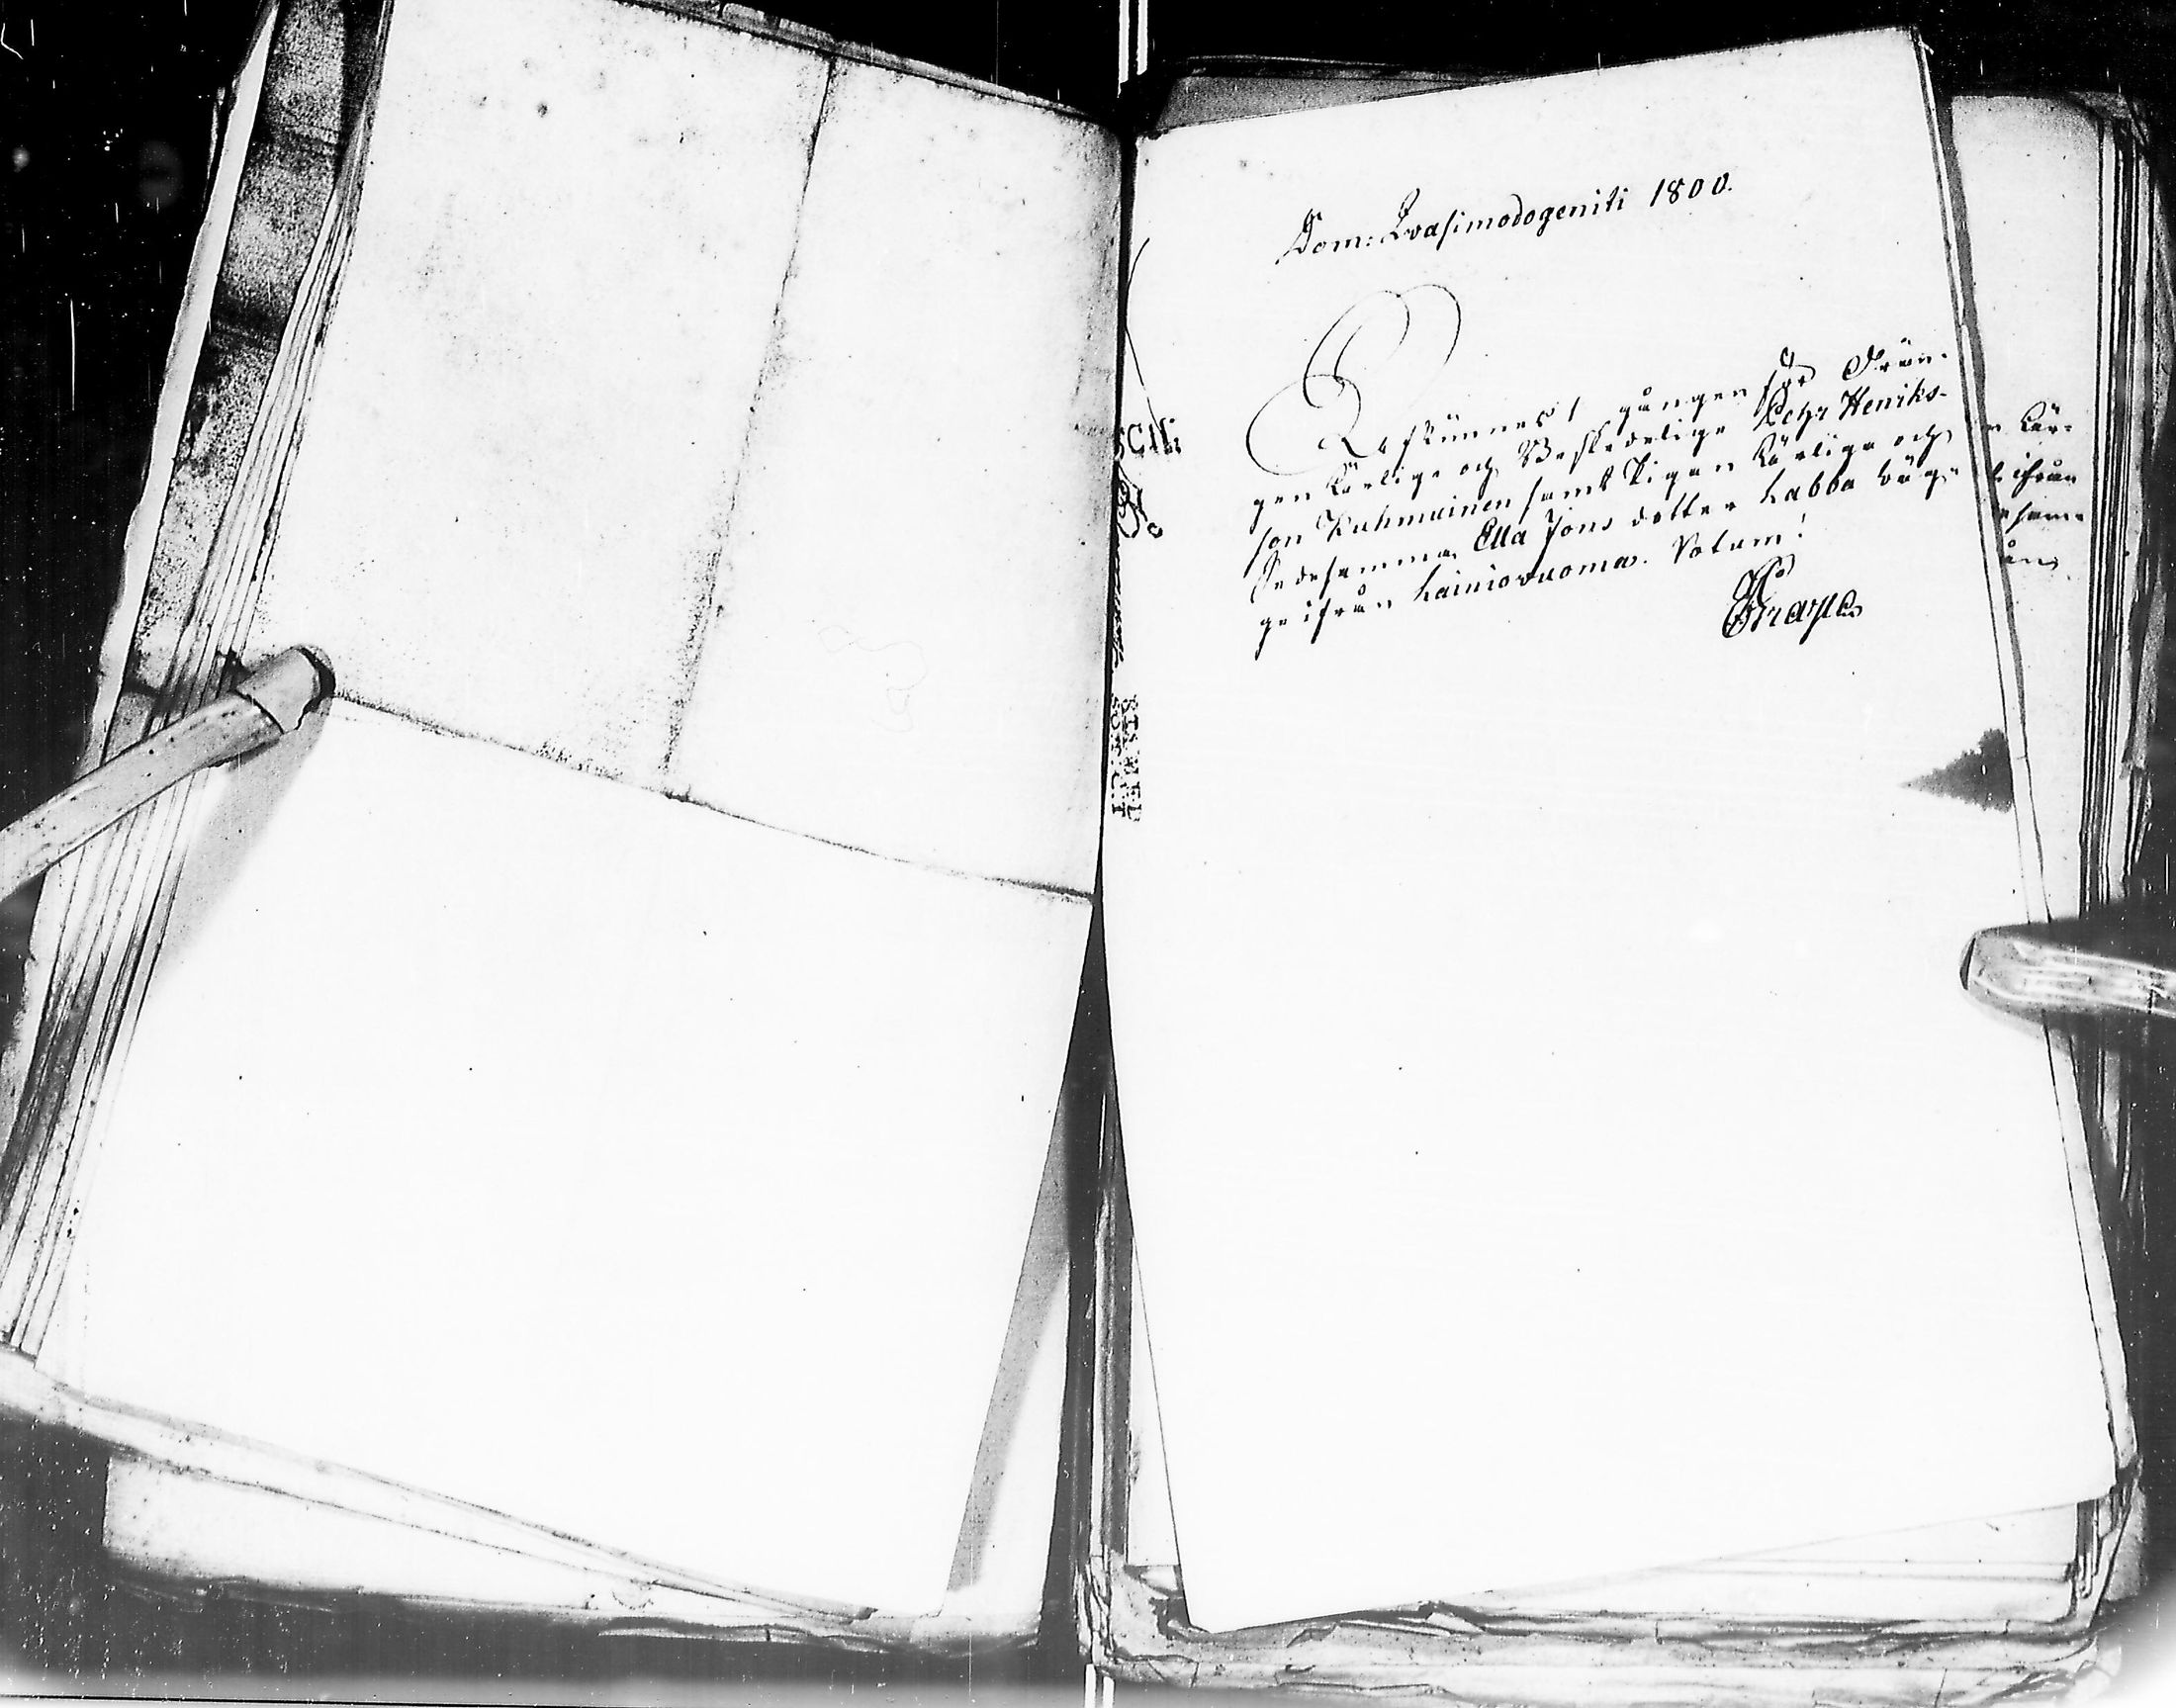 Dom: Qvasimodogeniti 1800.
Afkünnes 1 gången för Drän-
gen Ärlige och Beskedelige Pehr Henriks-
son Kuhmuinen samt Pigan Ärliga och
Sedesamma Ella Jons dotter Labba bäg-
ge ifrån Lainiovuoma. Votum!